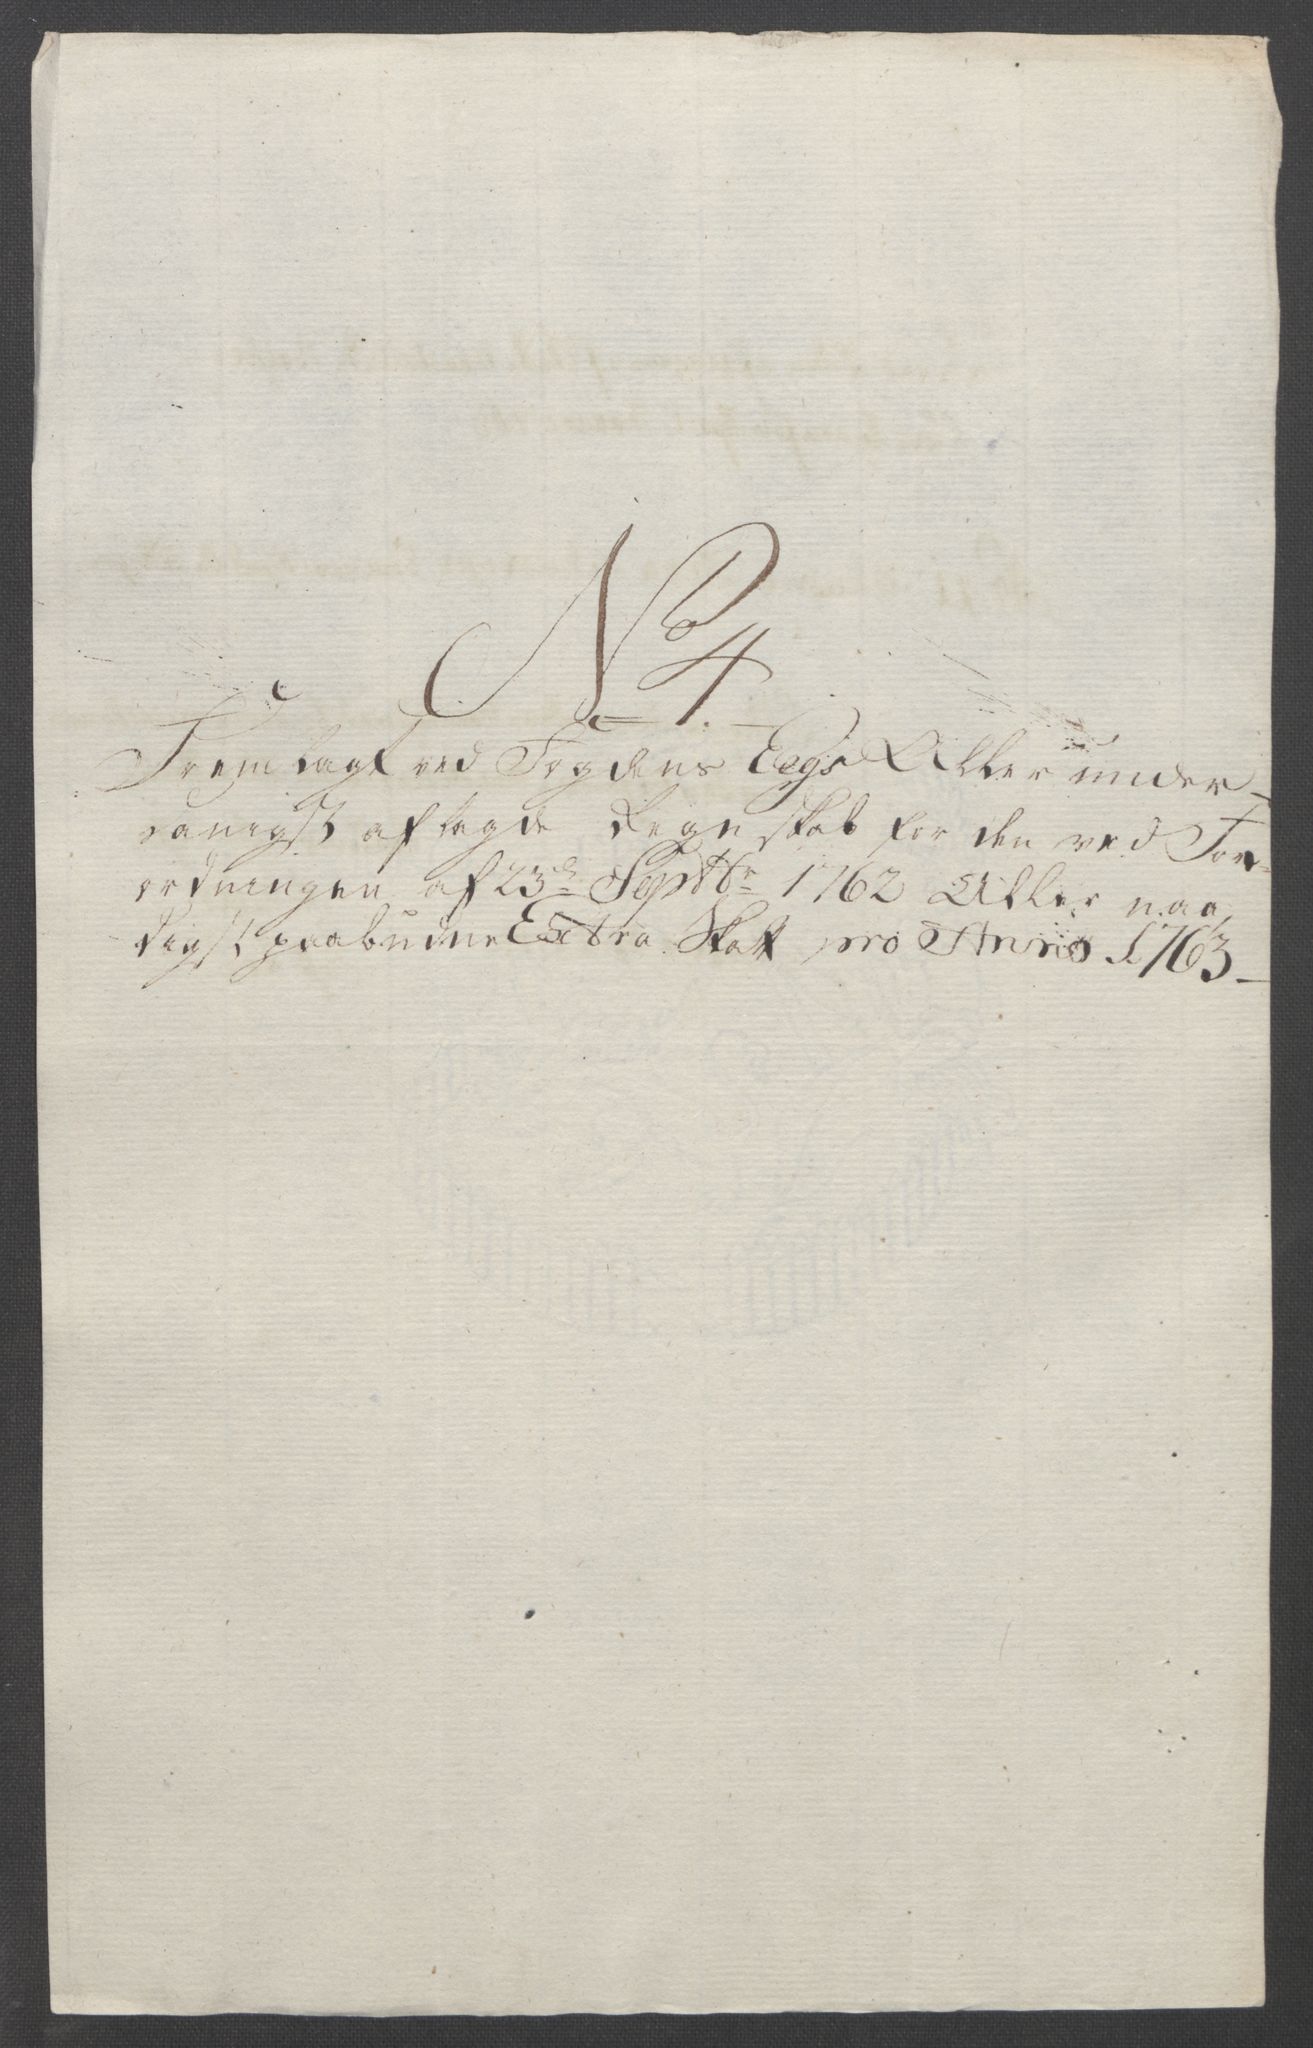 No 4
Fremlagt ved Fogdens Eegs Aller under-
danigst aflagde Regnskab for den ved For-
ordningen af 23de Septbr 1762 Aller naa,
digst paabudne Extra Skatt pro Anno 1763